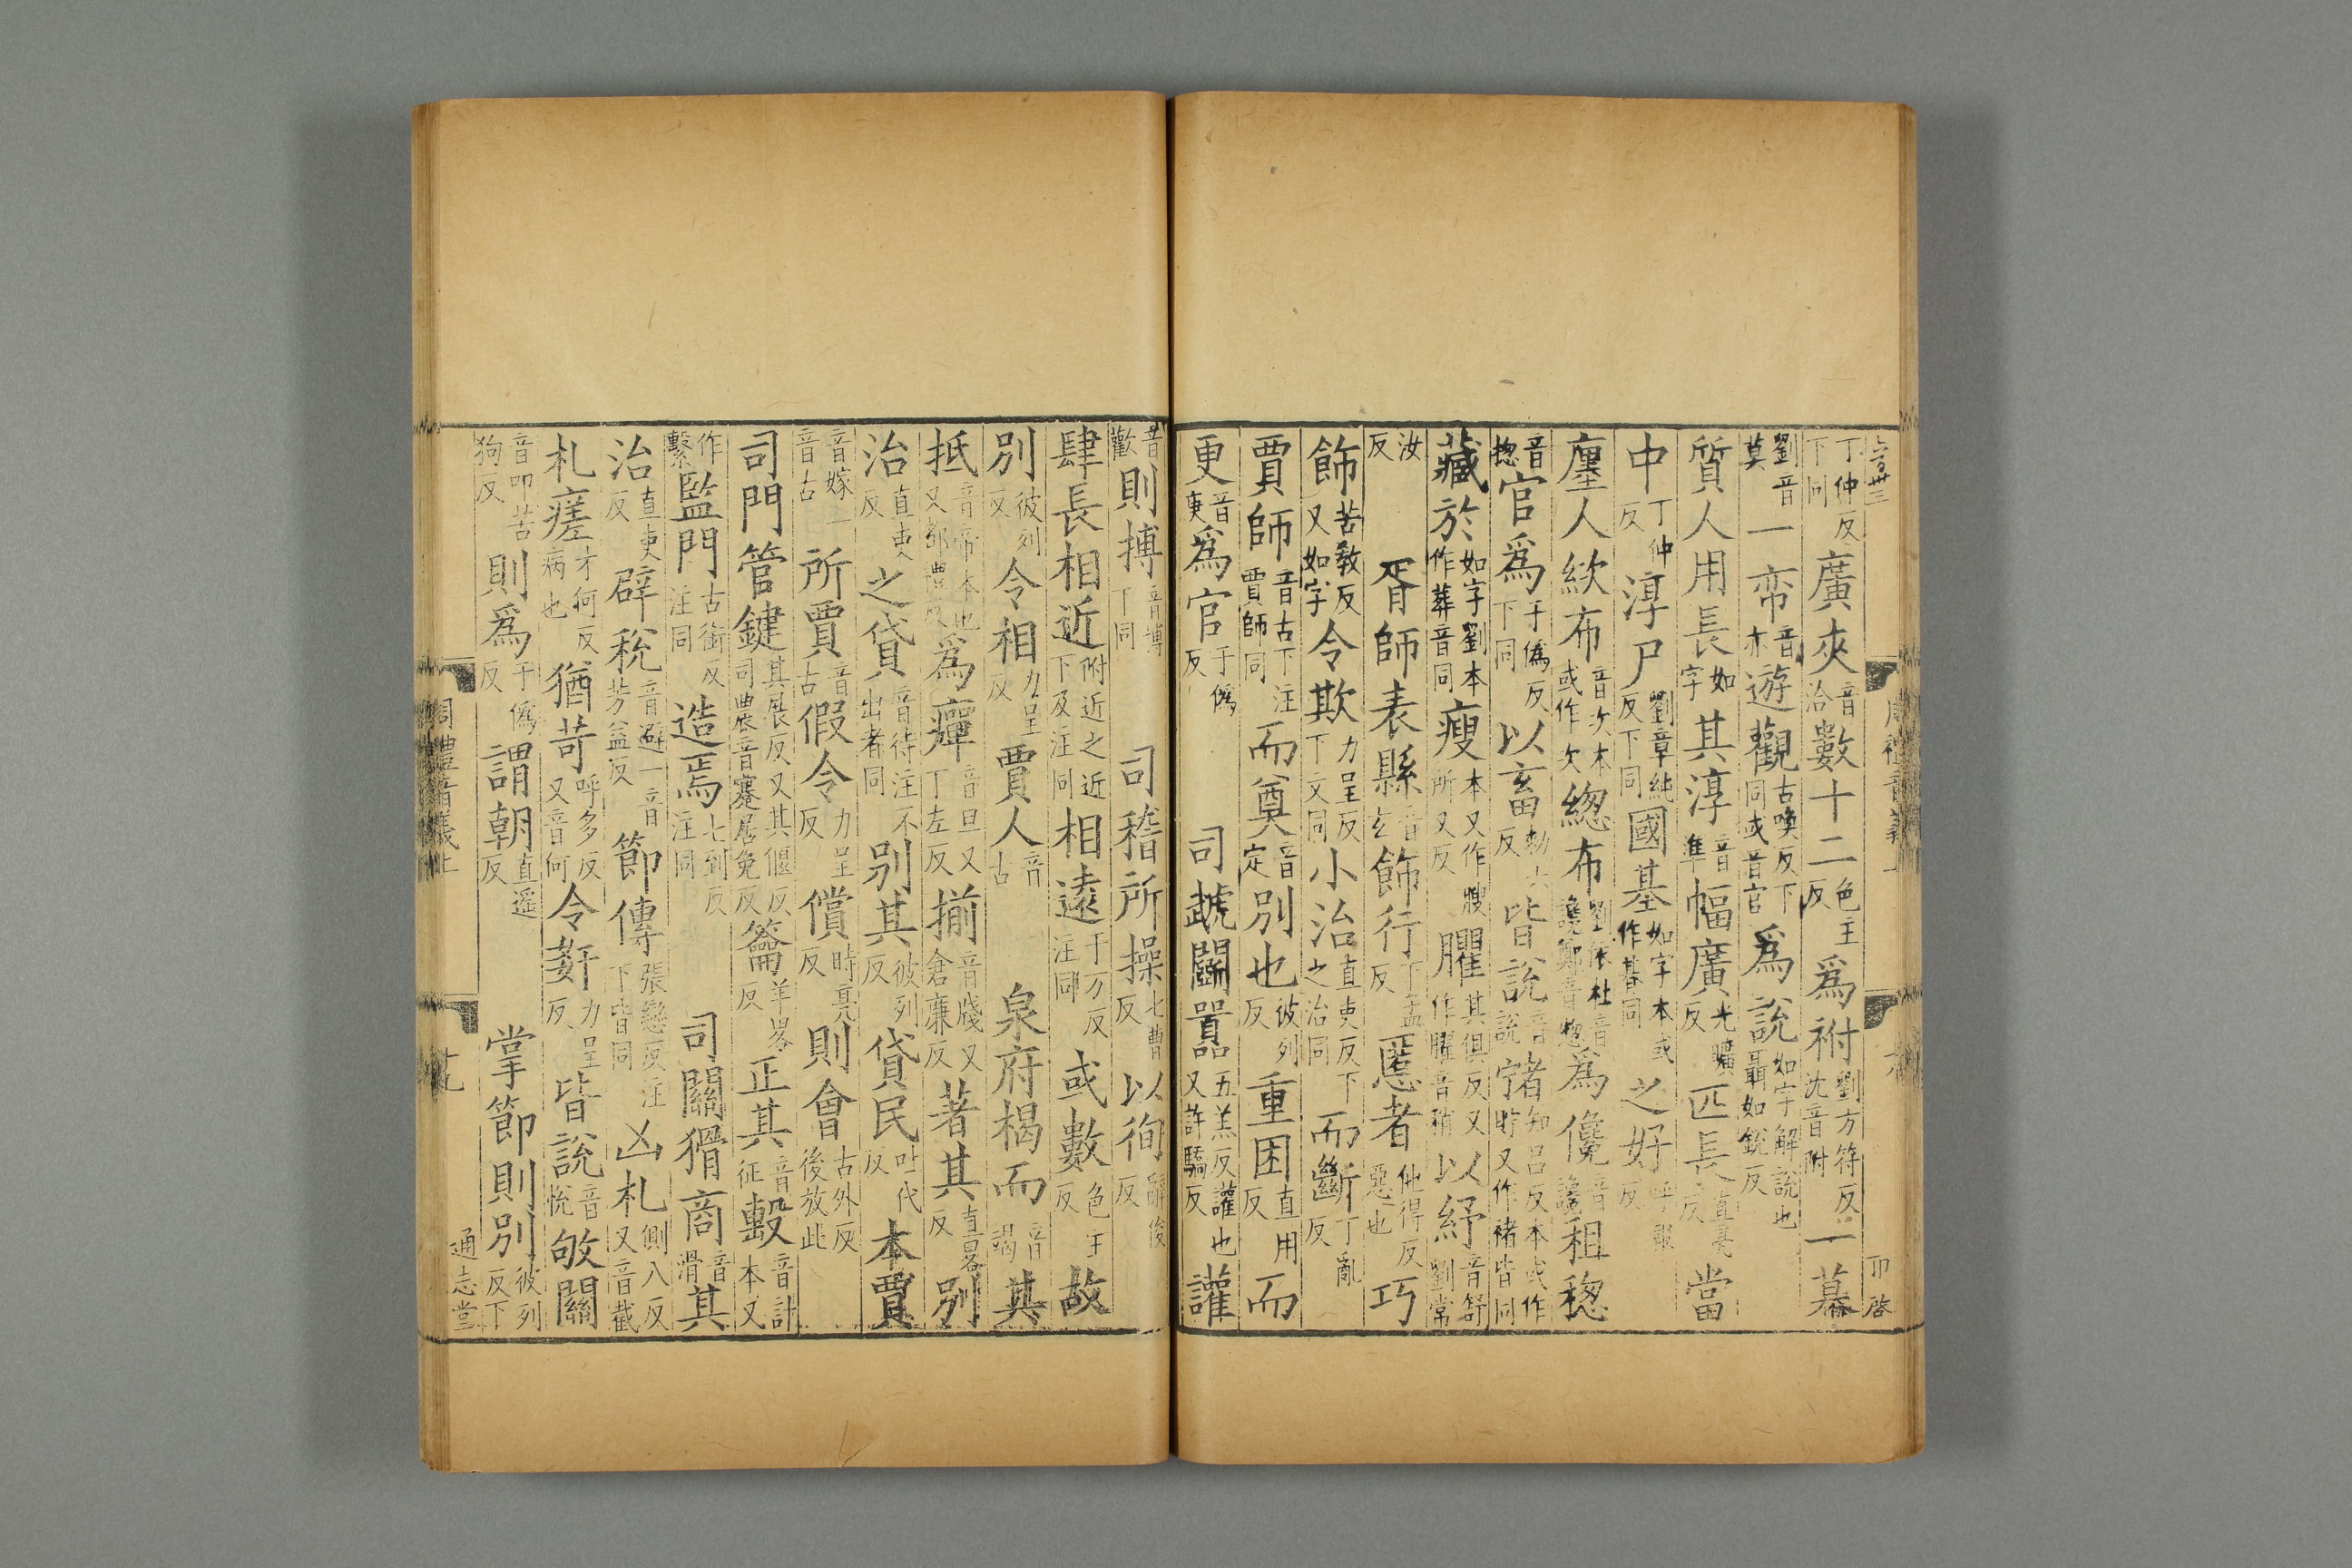 丁仲反下同廣夾音洽數十二色主反爲祔劉方符反沈音附一幕
劉音莫一帟音亦遊觀古喚反下同或音官爲說如字解說也聶如銳反
質人用長如字其淳音準幅廣光曠反匹長直亮反當
中丁仲反淳尸劉章純反下同國基如字本或作朞同之好呼報反
廛人絘布音次本或作次緫布劉依杜音儳鄭音揔爲儳音讒租稯
音揔官爲于僞反下同以畜勑六反皆說音說㡒知吕反本或作貯又作褚皆同
藏於如字劉本作葬音同瘦本又作膄所又反臞其俱反又作臞音稍以紓音舒劉常
汝反 胥師表縣音玄飾行丁孟反慝者他得反惡也巧
飾苦敎反又如字令欺力呈反下文同小治直吏反下之治同而斷丁亂反
賈師音古下注賈師同而奠音定別也彼列反重困直用反而
更音庚爲官于僞反 司虣鬭囂五羔反讙也又許驕反讙
音歡則搏音博下同 司稽所操七曹反以徇辭俊反
肆長相近附近之近下及注同相遠于万反注同或數色主反故
別彼列反令相力呈反賈人音古 泉府楬而音竭其
抵音帝本也又都禮反爲癉音旦又丁左反揃音牋又倉廉反著其直畧反別
治直吏反之貸音待注不出者同別其彼列反貸民吐代反本賈
音嫁一音古所賈音古假令力呈反償時亮反則會古外反後放此
司門管鍵其展反又其偃反司農音蹇居免反籥羊畧反正其音征毄音計本又
作繫監門古銜反注同造焉七到反注同 司關猾商音滑其
治直吏反辟稅音避一音芳益反節傳張戀反注下皆同凶札側八反又音截
札瘥才何反病也猶苛呼多反又音何令姧力呈反皆說音悅敂關
音叩苦狗反則爲于僞反謂朝直遥反 掌節則別彼列反下
周禮音義上 十九 通志堂